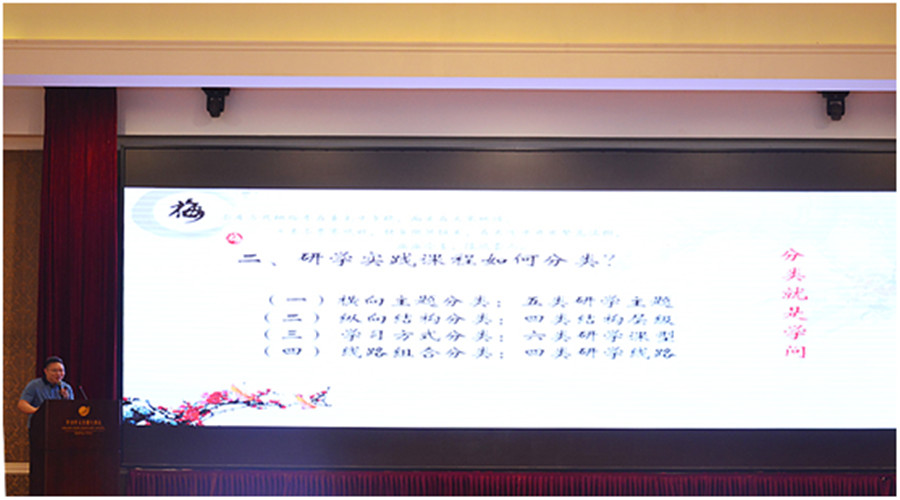 梅
二、研学实践课程如何分类？
（一）横向主题分类：五类研学主题
（二）纵向结构分类：四类结构层级
（三）学习方式分类：六类研学课型
（四）线路组合分类：四类研学线路
分类就是学问